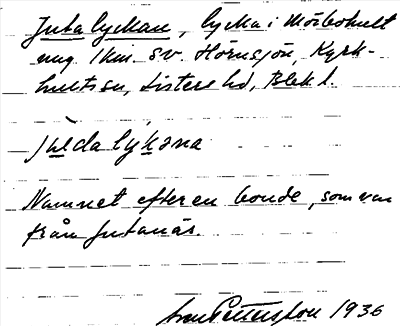 Jutalyckan, lycka i Mörbohult
ung 1 km SV Hörnsjön, Kyrk-
hults sn, Listers hd, Blek l.
Namnet efter en bonde, som var
från Jutanäs.
Pettersson 1936